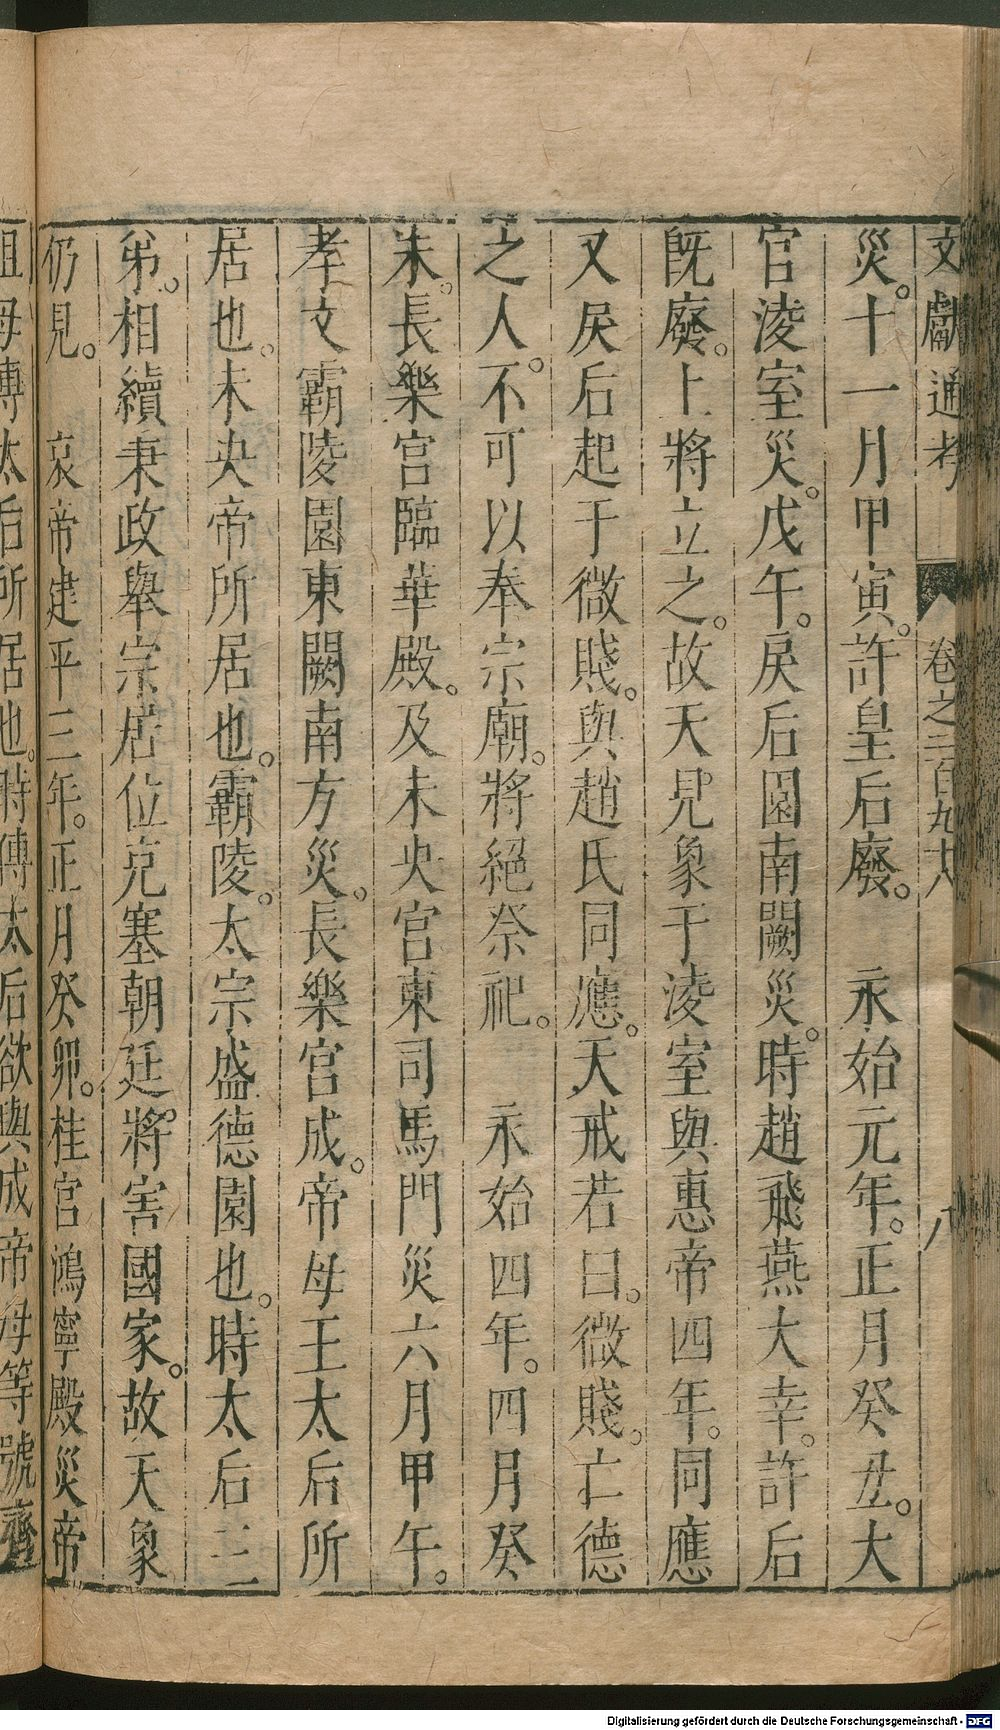 文獻通考 卷之二百九十八 八
災。十一月甲寅。許皇后廢。 永始元年。正月癸丑。大
官淩室災。戊午。戾后園南闕災。時趙飛燕大幸。許后
旣廢。上將立之。故天見象于淩室與惠帝四年。同應
又戾后起于微賤。與趙氏同應。天戒若曰。微賤。亡德
之人。不可以奉宗廟。將絕祭祀。 永始四年。四月癸
未。長樂宮臨華殿。及未央宮東司馬門災六月甲午。
孝文霸陵園東闕南方災。長樂宮成。帝母王太后所
居也。未央帝所居也。霸陵。太宗盛德園也。時太后三
弟。相續秉政舉宗居位充塞朝廷。將害國家。故天象
仍見。 哀帝建平三年。正月癸卯。桂宮鴻寧殿災帝
祖母傅太后所居也。時傅太后欲與成帝母等號齊
Digitalisierung gefördert durch die Deutsche Forschungsgemeinschaft - DFG